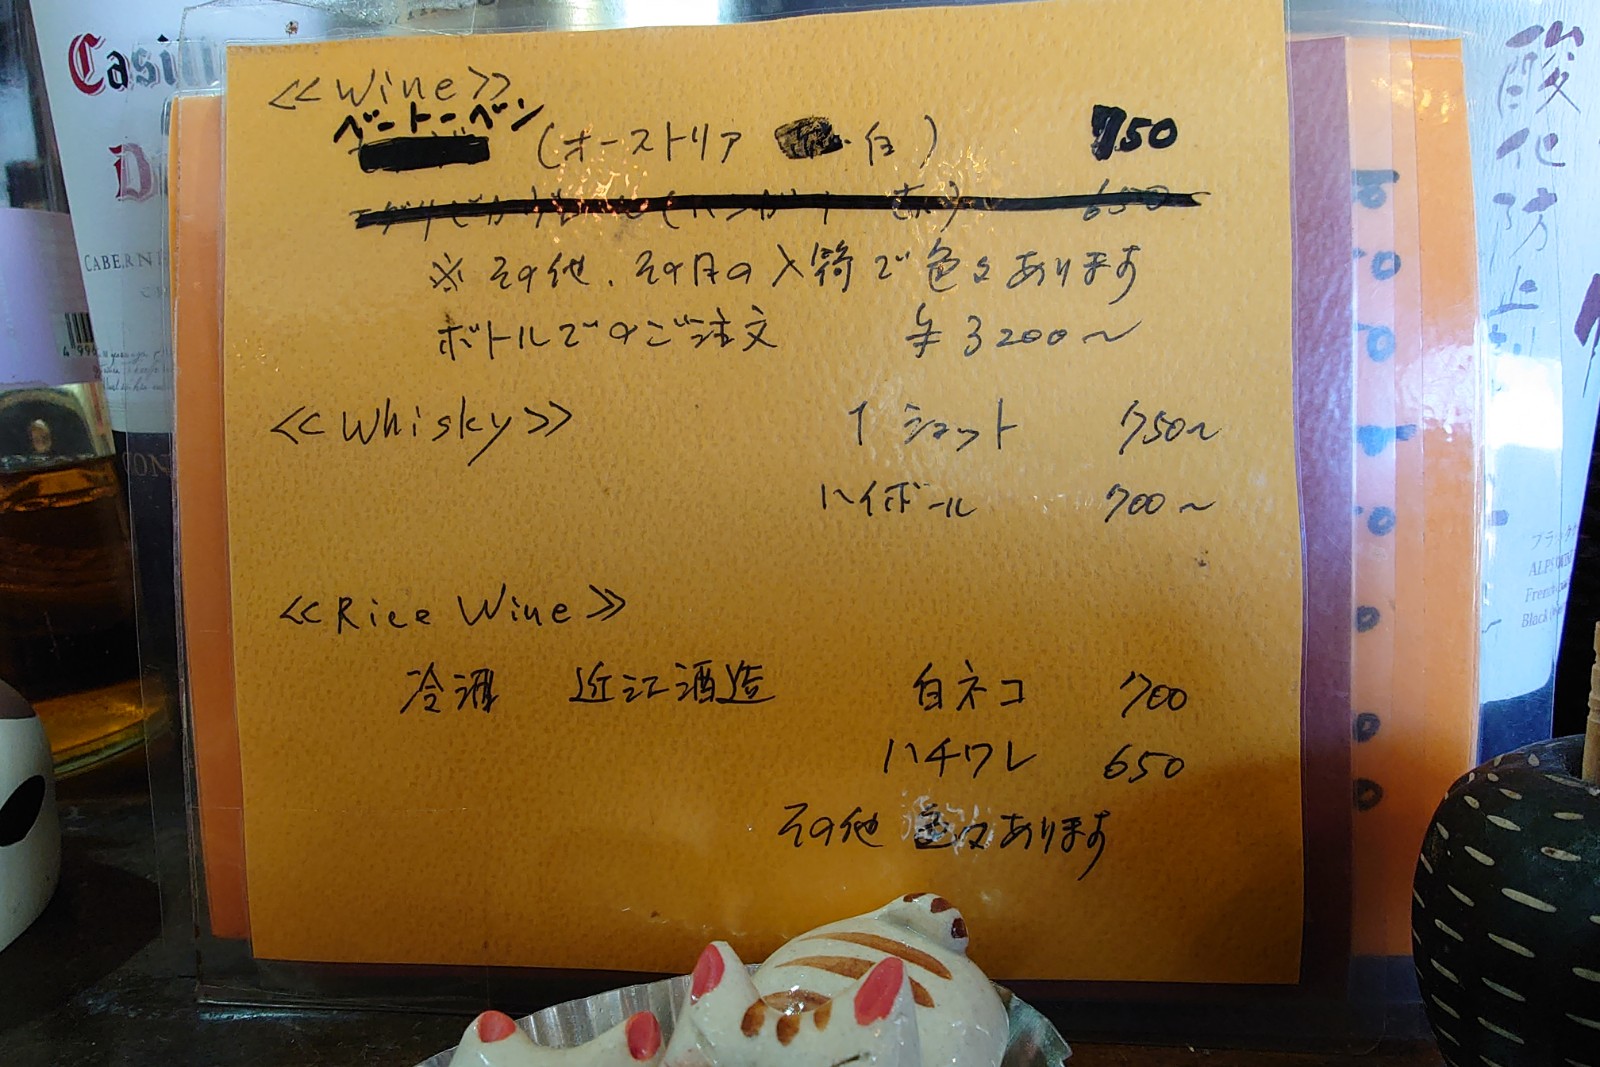 ≪Wine≫
ベートーベン (オーストリア 白) 750
650
※ その他、その月の入荷で色々あります
ボトルでのご注文 ¥3200～
≪Whisky≫ 1ショット 750～
ハイボール 700～
≪Rice Wine≫
冷酒 近江酒造 白ネコ 700
ハチワレ 650
その他 色々あります
酸化防止剤
CABERN